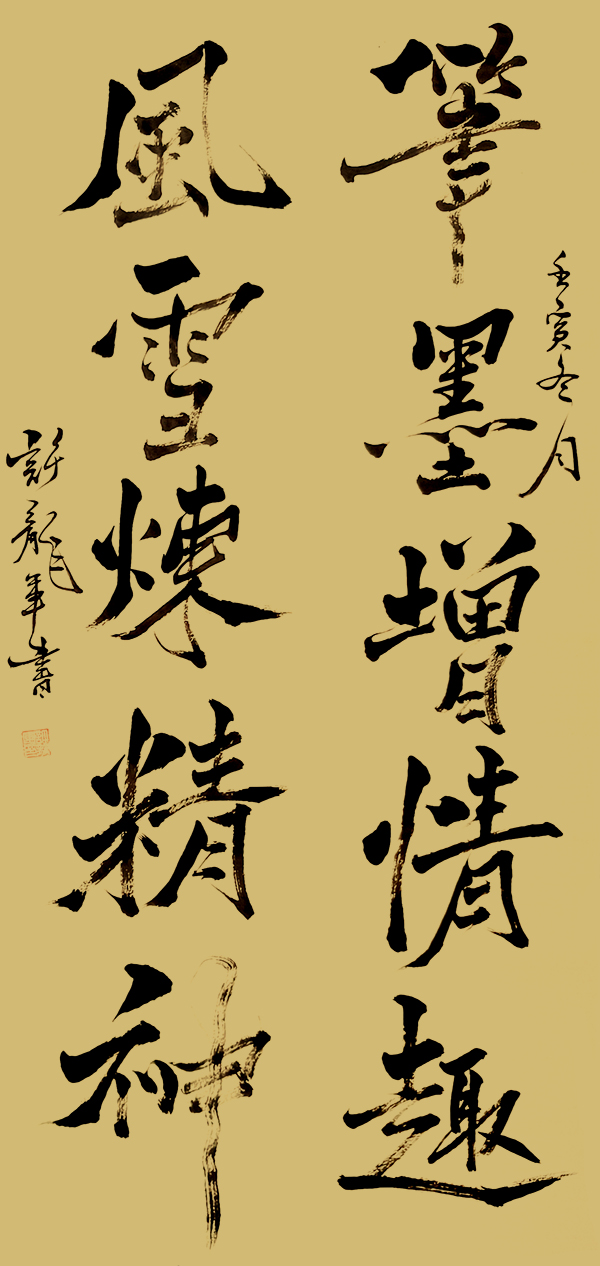 壬寅冬月
筆墨增情趣
風雪煉精神
許龍年書